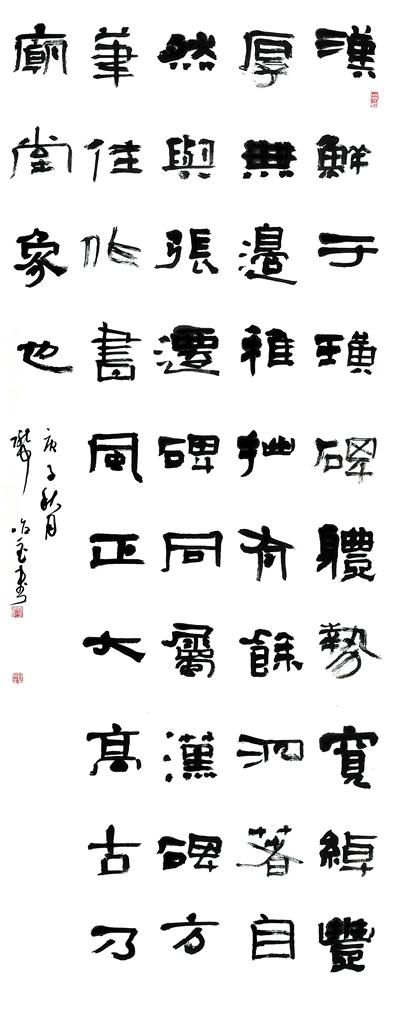 漢鮮于璜碑體勢寬綽豐
厚無邊雅拙有餘沉著自
然與張遷碑同屬漢碑方
筆佳作書風正大高古乃
廟堂象也
庚子秋月